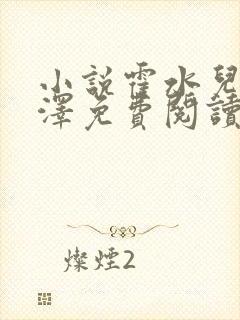 小說霍水兒
澤免費閱讀
燦煙2